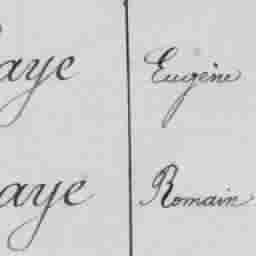 aye Eugène
aye Romain